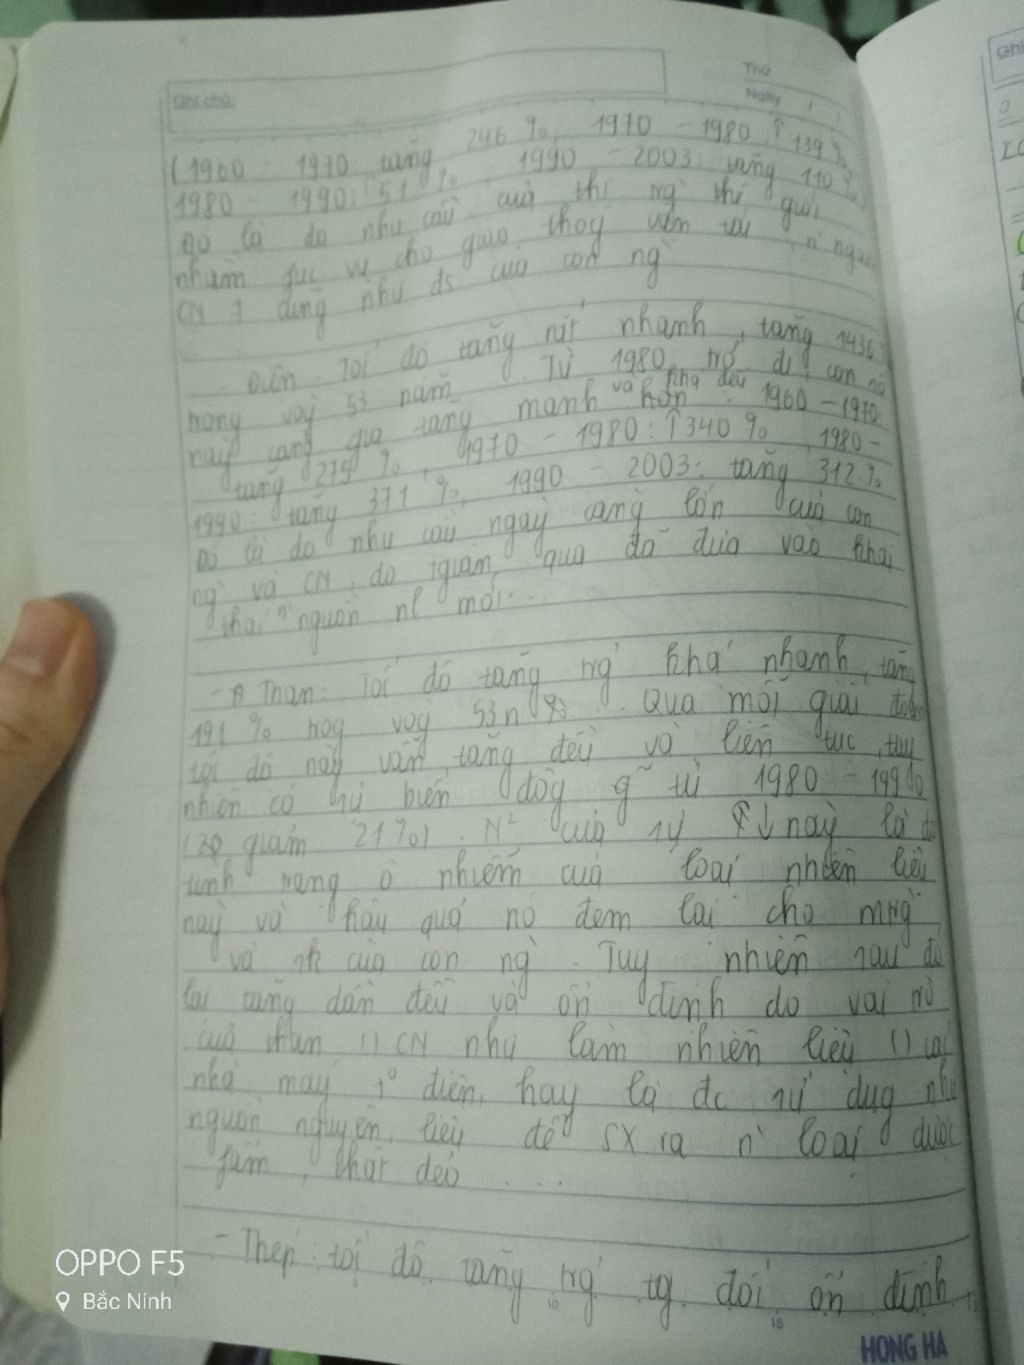 Ghi chú:
Thứ
Ngày / /
(1960 - 1970 tăng 246 %, 1970 - 1980 ↑ 139 %,
1980 - 1990: ↑51 %, 1990 - 2003: tăng 110 %)
Đó là do nhu cầu của thị trg thế giới
nhằm fục vụ cho giao thog vận tải, n ngàn
CN ≠ cũng như đs của con ng
- Điện: Tốc độ tăng rất nhanh, tăng 1436
trong vòg 53 năm. Từ 1980 trở đi, con số
này càng gia tăng mạnh và khá đều hơn: 1960 - 1970:
tăng 219 %, 1970 - 1980: ↑340 %, 1980 -
1990: tăng 371 %, 1990 - 2003: tăng 312 %.
Đó là do nhu cầu ngày càng lớn của con
ng và CN, do tgian qua đã đưa vào khai
thác n nguồn nl mới...
- Than: Tốc độ tăng trg khá nhanh, tăng
191 % trog vòg 53 n. Qua mỗi giai đoạn
tốc độ này vẫn tăng đều và liên tục, tuy
nhiên có sự biến độg g~ từ 1980 - 1990
giảm 21%). N² của sự ↑↓ này là do
tình trạng ô nhiễm của loại nhiên liệu
này và hậu quả nó đem lại cho mtrg
và sk của con ng. Tuy nhiên sau đó
lại tăng dần đều và ổn định do vai trò
của than () CN như làm nhiên liệu () các
nhà máy t° điện, hay là đc sử dụg như
nguồn nguyên liệu để SX ra n loại dược
fẩm, chất dẻo ...
- Thép: tốc độ tăng trg tg đối ổn định
10
15
HONG HA
OPPO F5
Bắc Ninh